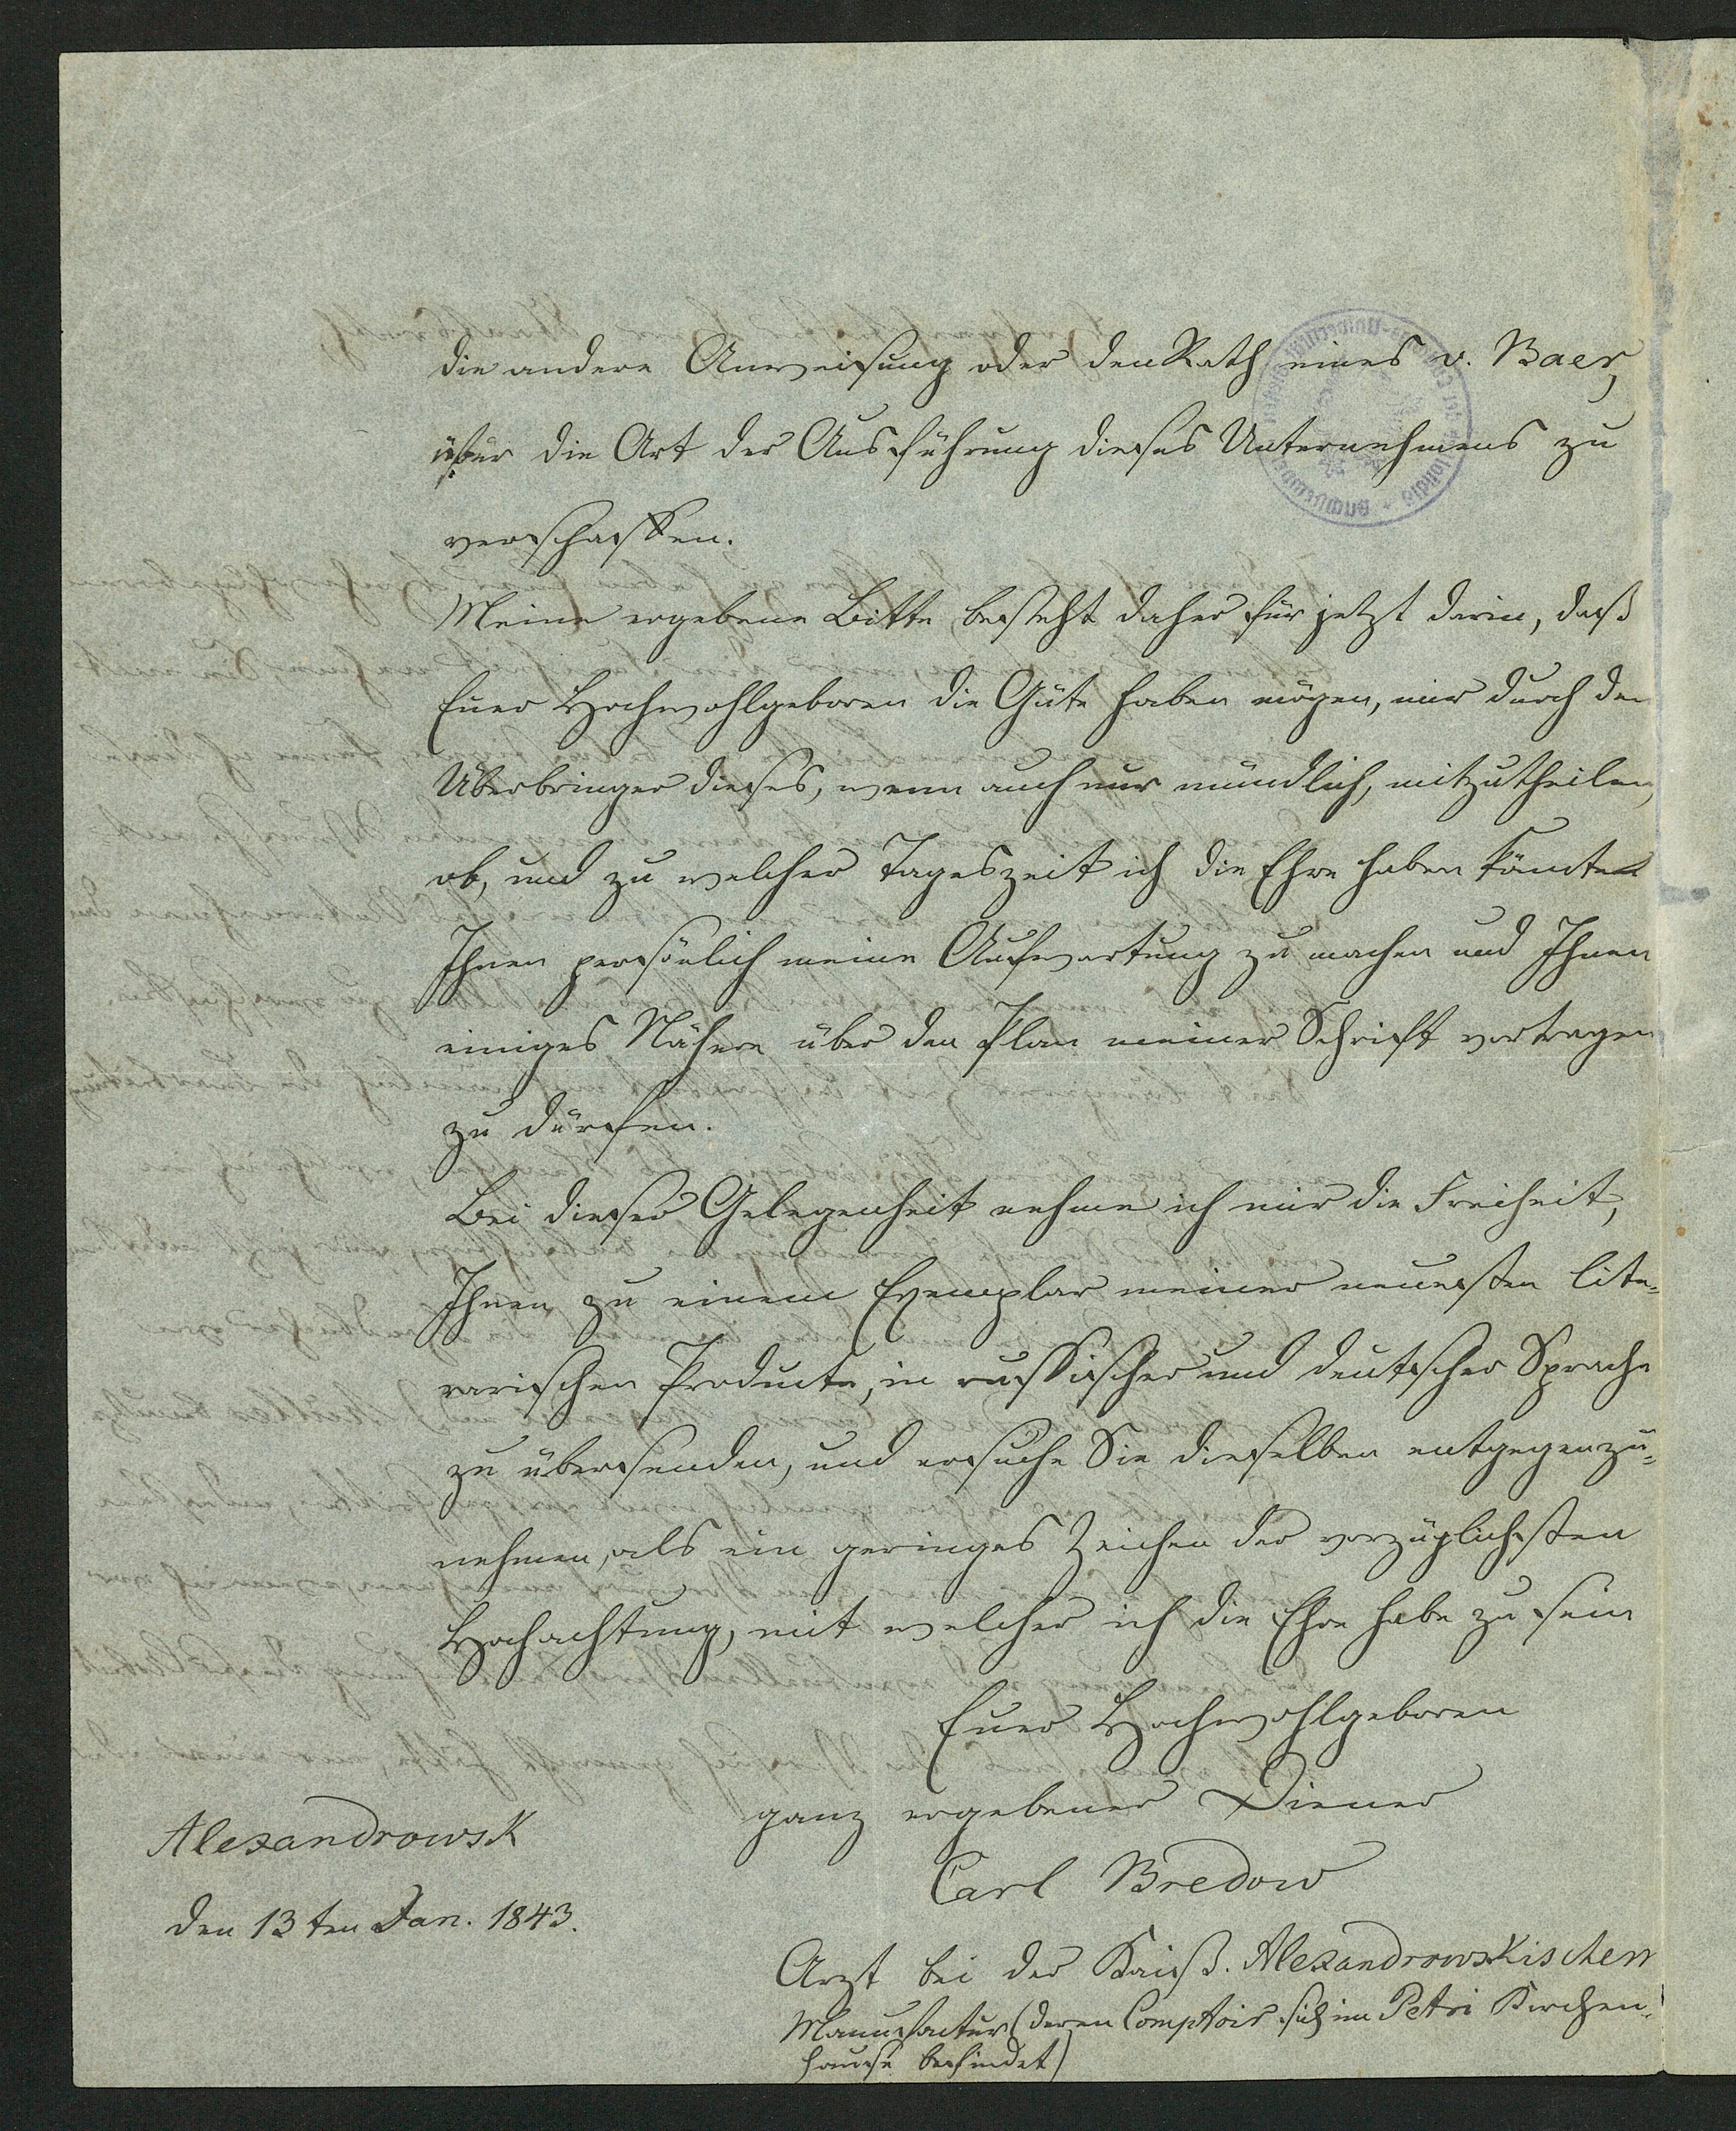 die andere Anweisung oder den Rath eines v. Baer,
über die Art der Ausführung dieses Unternehmens zu
verschaffen.
Meine ergebene Bitte besteht daher für jetzt darin, daß
Euer Hochwohlgeboren die Güte haben mögen, mir durch den
Überbringer dieses, wenn auch nur mündlich, mitzutheilen,
ob, und zu welcher Tageszeit ich die Ehre haben könnte
Ihnen persönlich meine Aufwartung zu machen und Ihnen
einiges Nähere über den Plan meiner Schrift vortragen
zu dürfen.
Bei dieser Gelegenheit nehme ich mir die Freiheit,
Ihnen zu einem Exemplar meiner neuesten lite-
rarischen Producte, in russischer und deutscher Sprache
zu übersenden, und ersuche Sie dieselben entgegenzu-
nehmen, als ein geringes Zeichen der vorzüglichsten
Hochachtung, mit welcher ich die Ehre habe zu sein
Euer Hochwohlgeboren
ganz ergebener Diener
Carl Bredow
Alexandrowsk
den 13ten Jan. 1843.
Arzt bei der Kaiß. Alexandrowskischen
Manufactur (deren Comptoir sich im Petri Kirchen-
hause befindet)